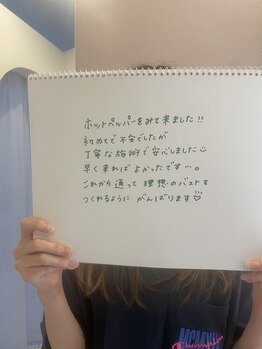 ホットペッパーをみて来ました!!
初めてで不安でしたが
丁寧な施術で安心しました
早く来ればよかったです…。
これから通って理想のバストを
つくれるようにがんばります♡
Champion